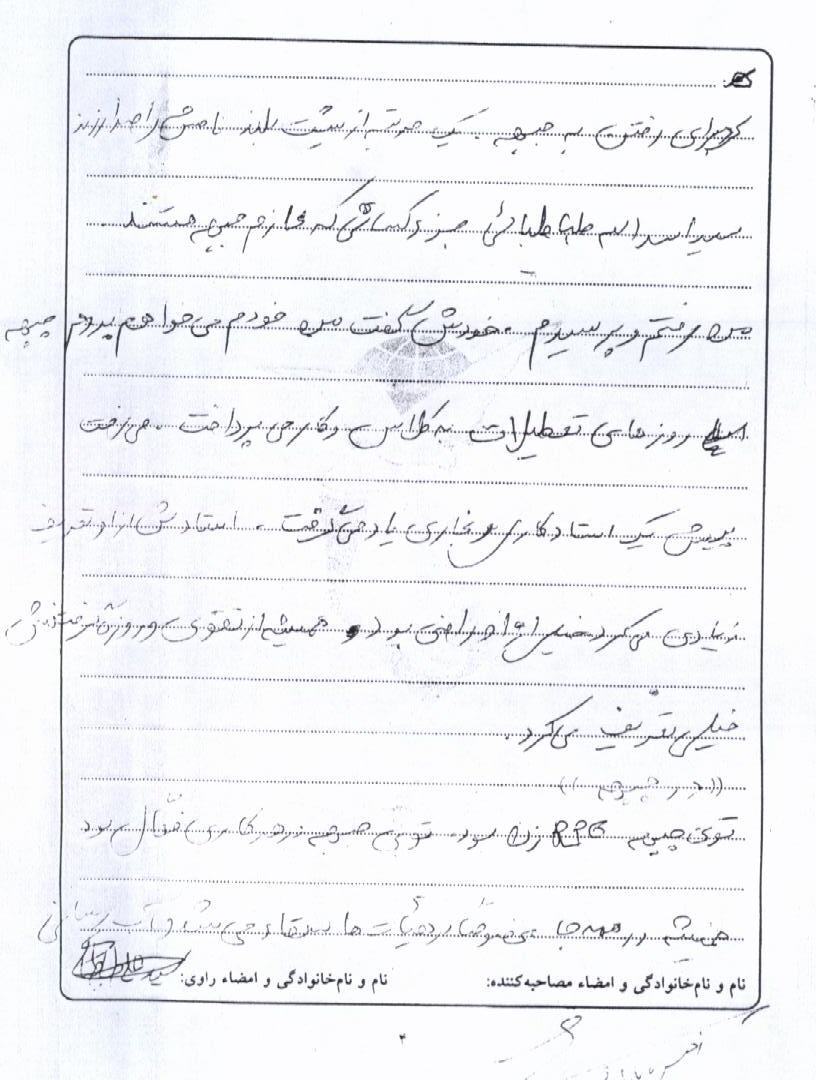 برای رفتن به جبهه. یک مرتبه از پشت بلند
سید اسدالله طباطبائی جزو کسانی که عازم جبهه هستند
من رفتم و پرسیدم. خودش گفت من خودم می‌خواهم بروم جبهه
روزهای تعطیلات به کلاس و کار می پرداخت. می رفت
پیش یک استاد کاری و نجاری یاد می گرفت. استادش از او تعریف
زیادی می کرد خیلی از او راضی بود و همیشه از تقوی و روزه گرفتنش
خیلی تعریف می کرد.
((در جبهه))
توی جبهه RPG زن بود. توی جبهه در هر کاری فعّال بود
همیشه در همه جا مخصوصاً در هیأت ها سقاء می شد و آب رسانی
نام و نام‌خانوادگی و امضاء مصاحبه‌کننده: نام و نام‌خانوادگی و امضاء راوی:
۴